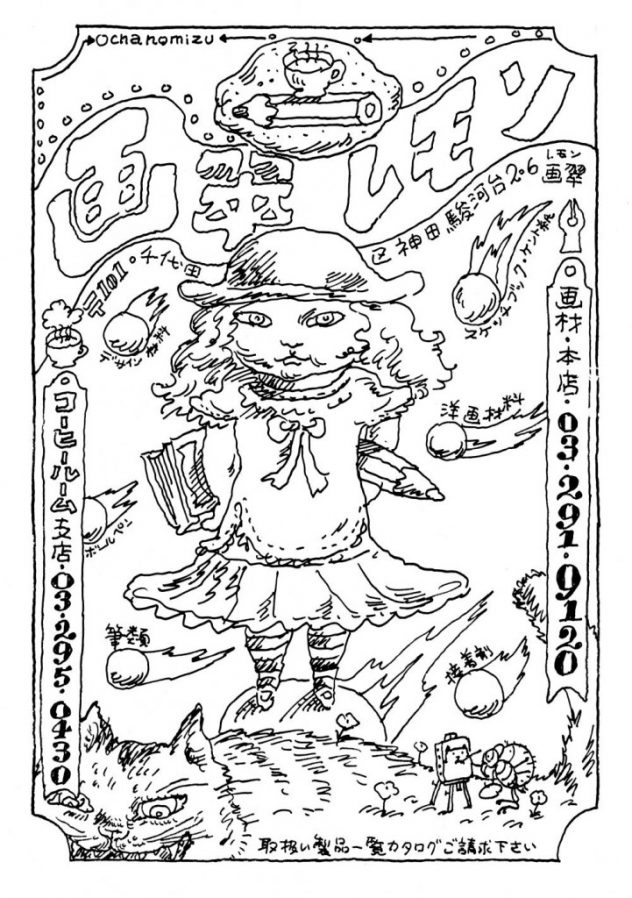 Ochanomizu
画翠レモン
〒101・千代田区神田駿河台2・6
レモン
画翠
デザイン材料
スケッチブック・ケント紙
洋画材料
ボールペン
筆類
接着剤
画材・本店・03・291・9120
コーヒールーム支店・03・295・0430
取扱い製品一覧カタログご請求下さい